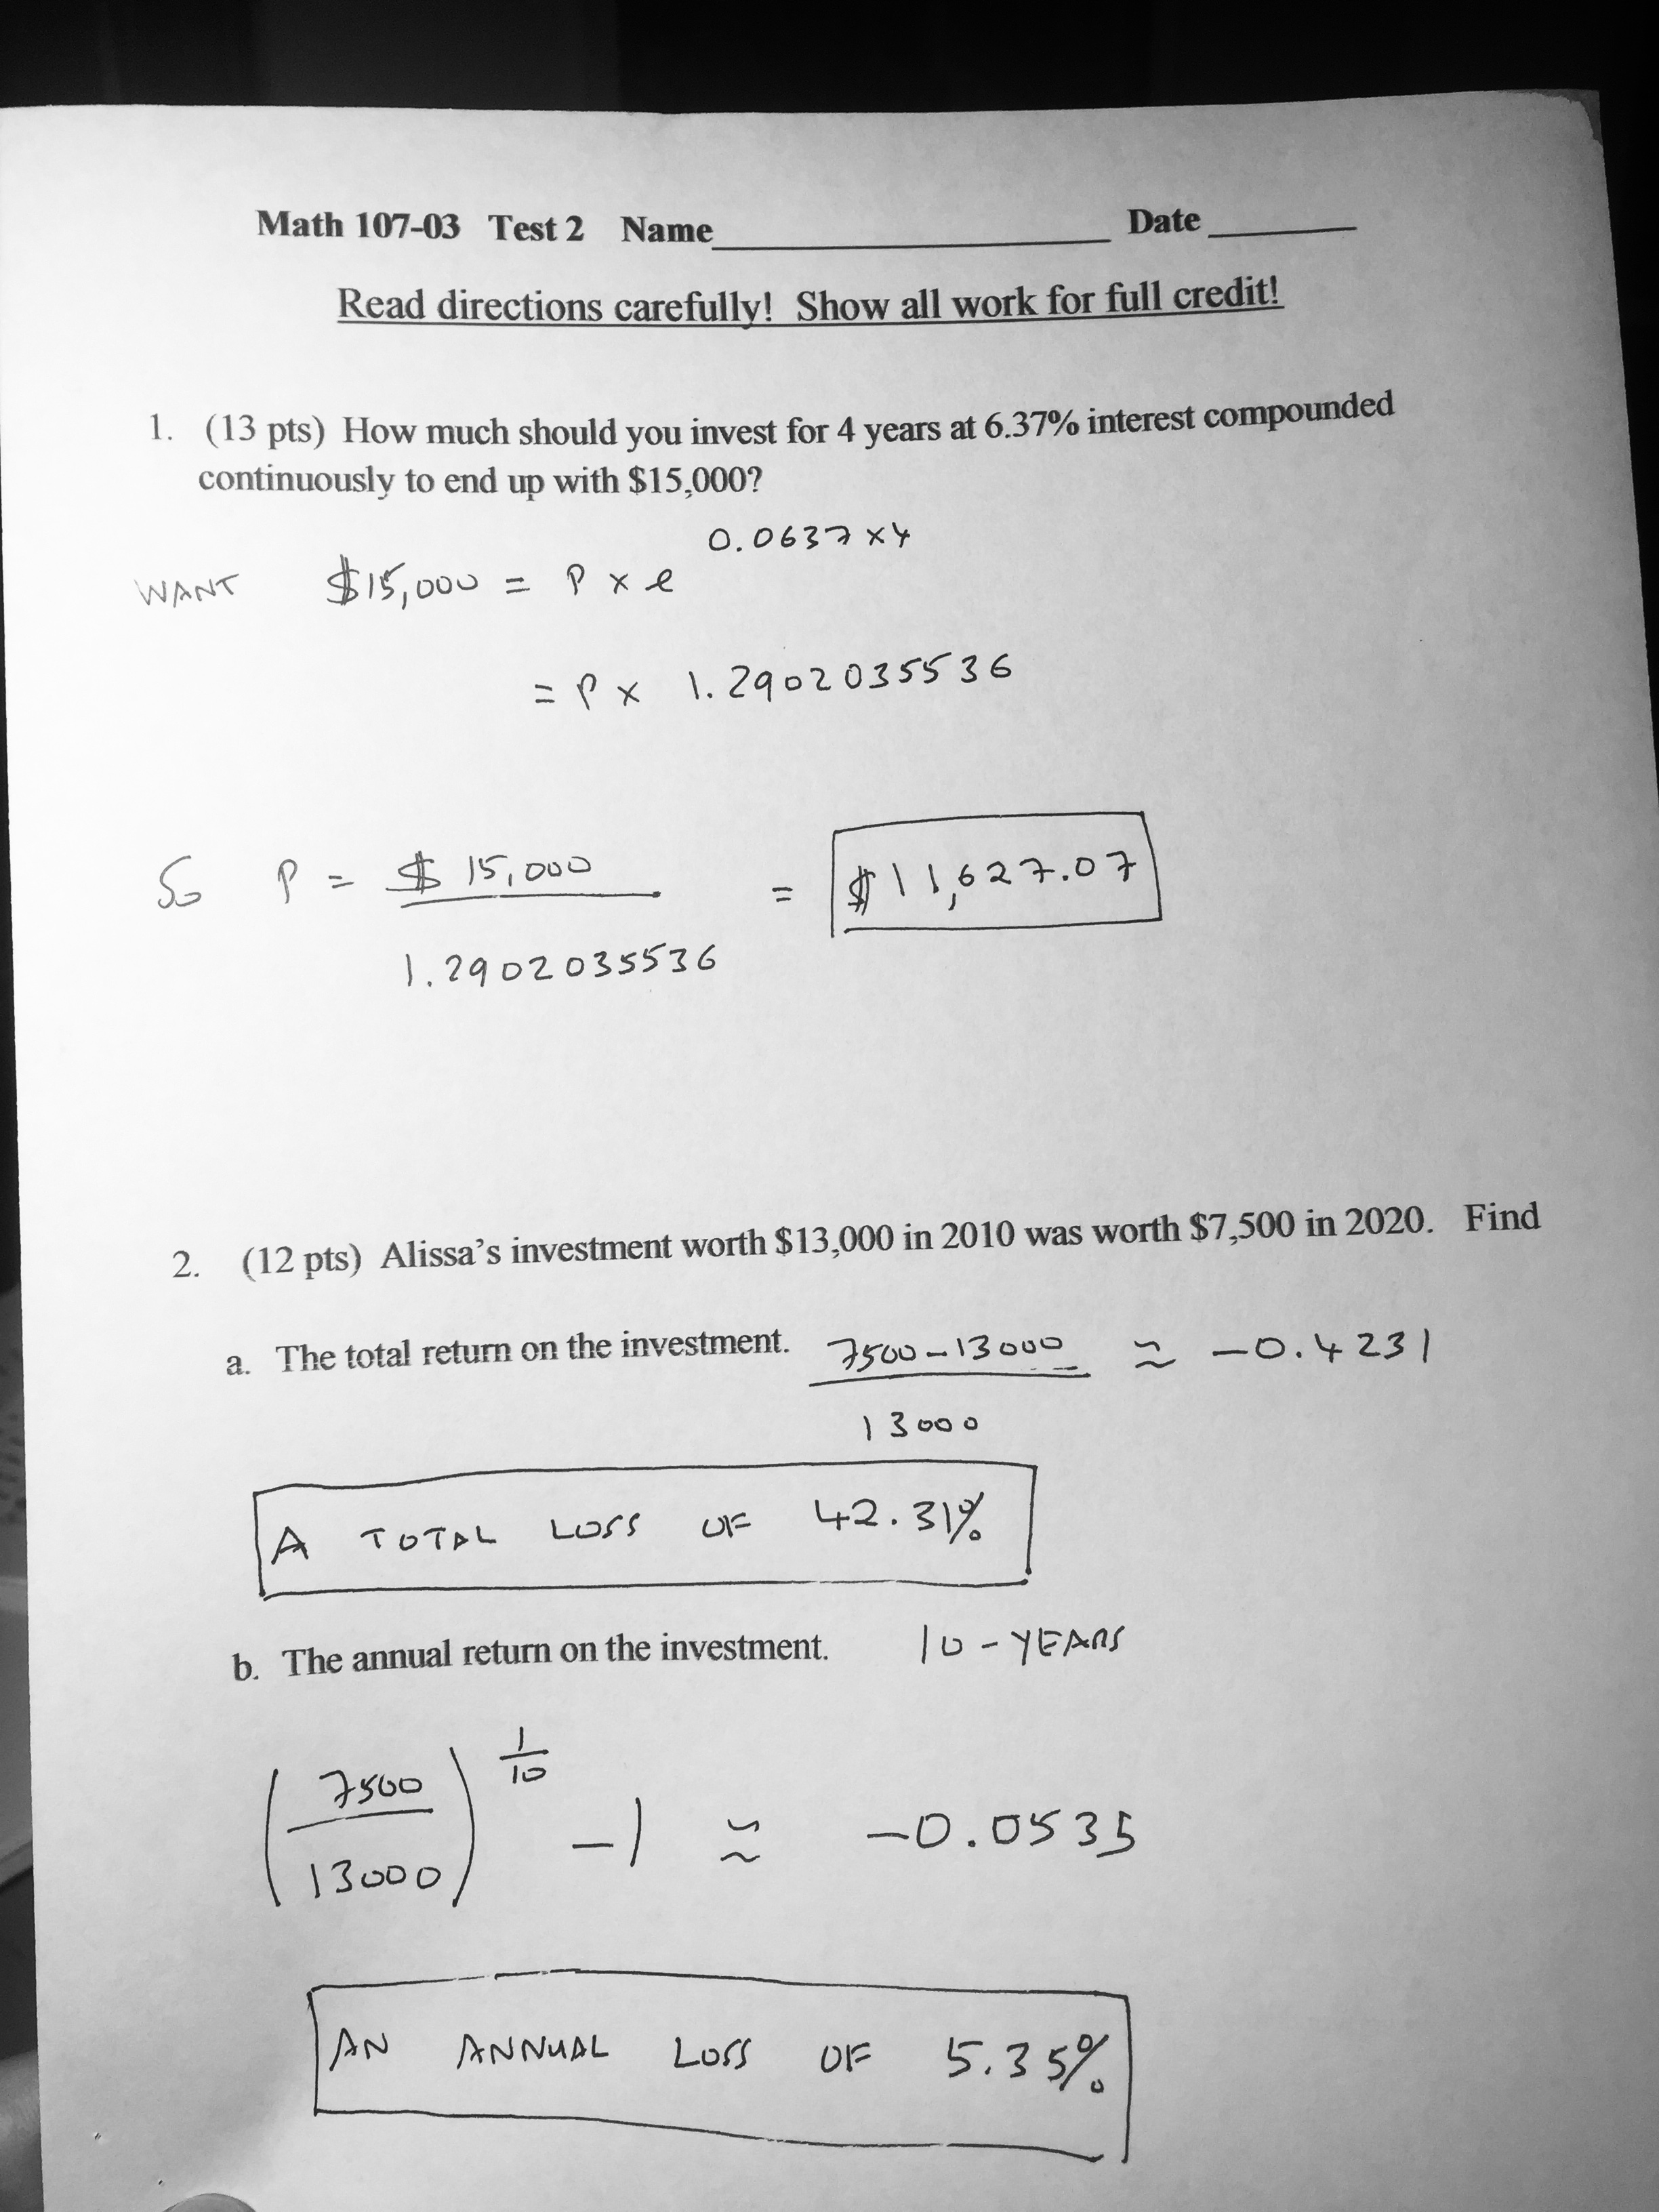 Math 107-03 Test 2 Name__________ Date ______
Read directions carefully! Show all work for full credit!
1. (13 pts) How much should you invest for 4 years at 6.37% interest compounded
continuously to end up with $15,000?
0.0637 × 4
WANT $15,000 = P × e
= P × 1.2902035536
So P = $ 15,000 = $11,627.07
1.2902035536
2. (12 pts) Alissa's investment worth $13,000 in 2010 was worth $7,500 in 2020. Find
a. The total return on the investment. 7500-13000 ≃ -0.4231
13000
A TOTAL LOSS OF 42.31%
b. The annual return on the investment. 10-YEARS
(7500/13000)^(1/10) - 1 ≃ -0.0535
AN ANNUAL LOSS OF 5.35%